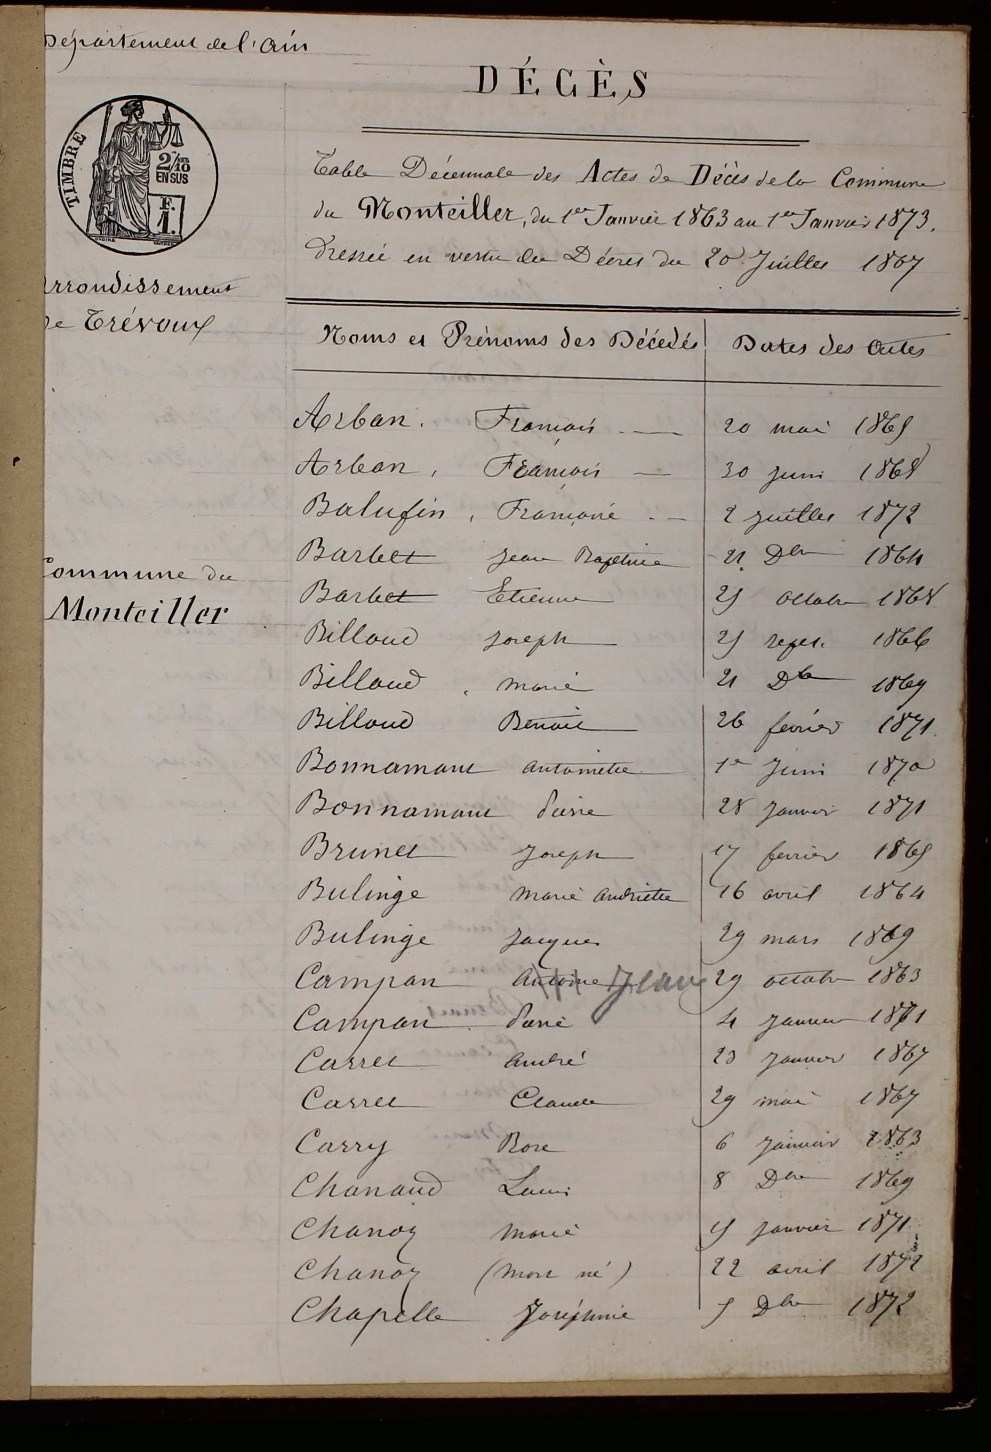 Département de l'Ain
DÉCÈS
TIMBRE
2/10
EN SUS
F.
1.
Table Décennale des Actes de Décès de la Commune
du Monteiller, du 1er Janvier 1863 au 1er Janvier 1873.
Dressée en vertu du Décret du 20 Juillet 1807
Arrondissement
de Trévoux
Commune du
Monteiller
Noms et Prénoms des Décédés Dates des Actes
Arban. François 20 mai 1865
Arban, François 30 juin 1868
Balufin, Françoise 2 juillet 1872
Barbet Jean Baptiste 21 Dbre 1864
Barbet Etienne 25 octobre 1868
Billoud Joseph 25 sept. 1866
Billoud, Marie 21 Dbre 1869
Billoud Benoit 26 février 1871
Bonnamant Antoinette 1er Juin 1870
Bonnamant Pierre 28 Janvier 1871
Brunet Joseph 17 février 1865
Bulinge Marie Andriette 16 avril 1864
Bulinge Jacques 29 mars 1869
Campan Antoine Jeanne 29 octobre 1863
Campan Pierre 4 Janvier 1871
Carret André 23 Janvier 1867
Carret Claude 29 mai 1867
Carry Rose 6 Janvier 1863
Chanaud Louis 8 Dbre 1869
Chanoz Marie 15 Janvier 1871
Chanoz (Mort né) 22 avril 1872
Chapelle Joséphine 5 Dbre 1872